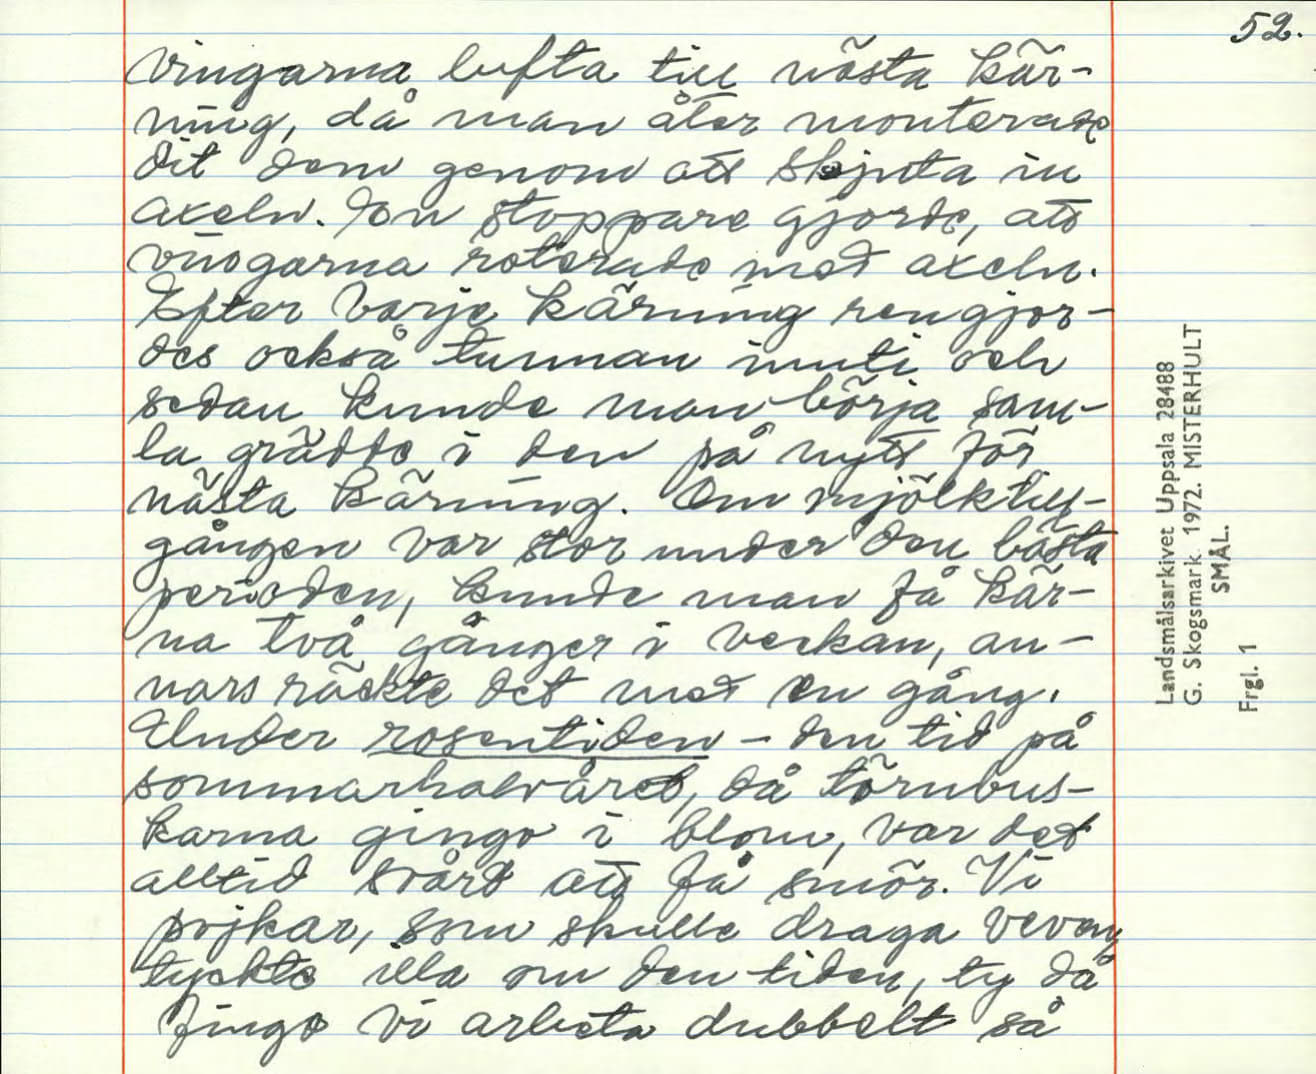 52.
vingarna lufta till nästa kär-
ning, då man åter monterade
dit dem genom att skjuta in
axeln. En stoppare gjorde, att
vingarna roterade med axeln.
Efter varje kärning rengjor-
des också tunnan inuti och
sedan kunde man börja sam-
la grädde i den på nytt för
nästa kärning. Om mjölktill-
gången var stor under den bästa
perioden, kunde man få kär-
na två gånger i veckan, an-
nars räckte det med en gång.
Under rosentiden - den tid på
sommarhalvåret, då törnbus-
karna gingo i blom, var det
alltid svårt att få smör. Vi
pojkar, som skulle draga veven,
tyckte illa om den tiden, ty då
fingo vi arbeta dubbelt så
Landsmålsarkivet Uppsala 28488
G. Skogsmark. 1972. MISTERHULT
SMÅL.
Frgl. 1